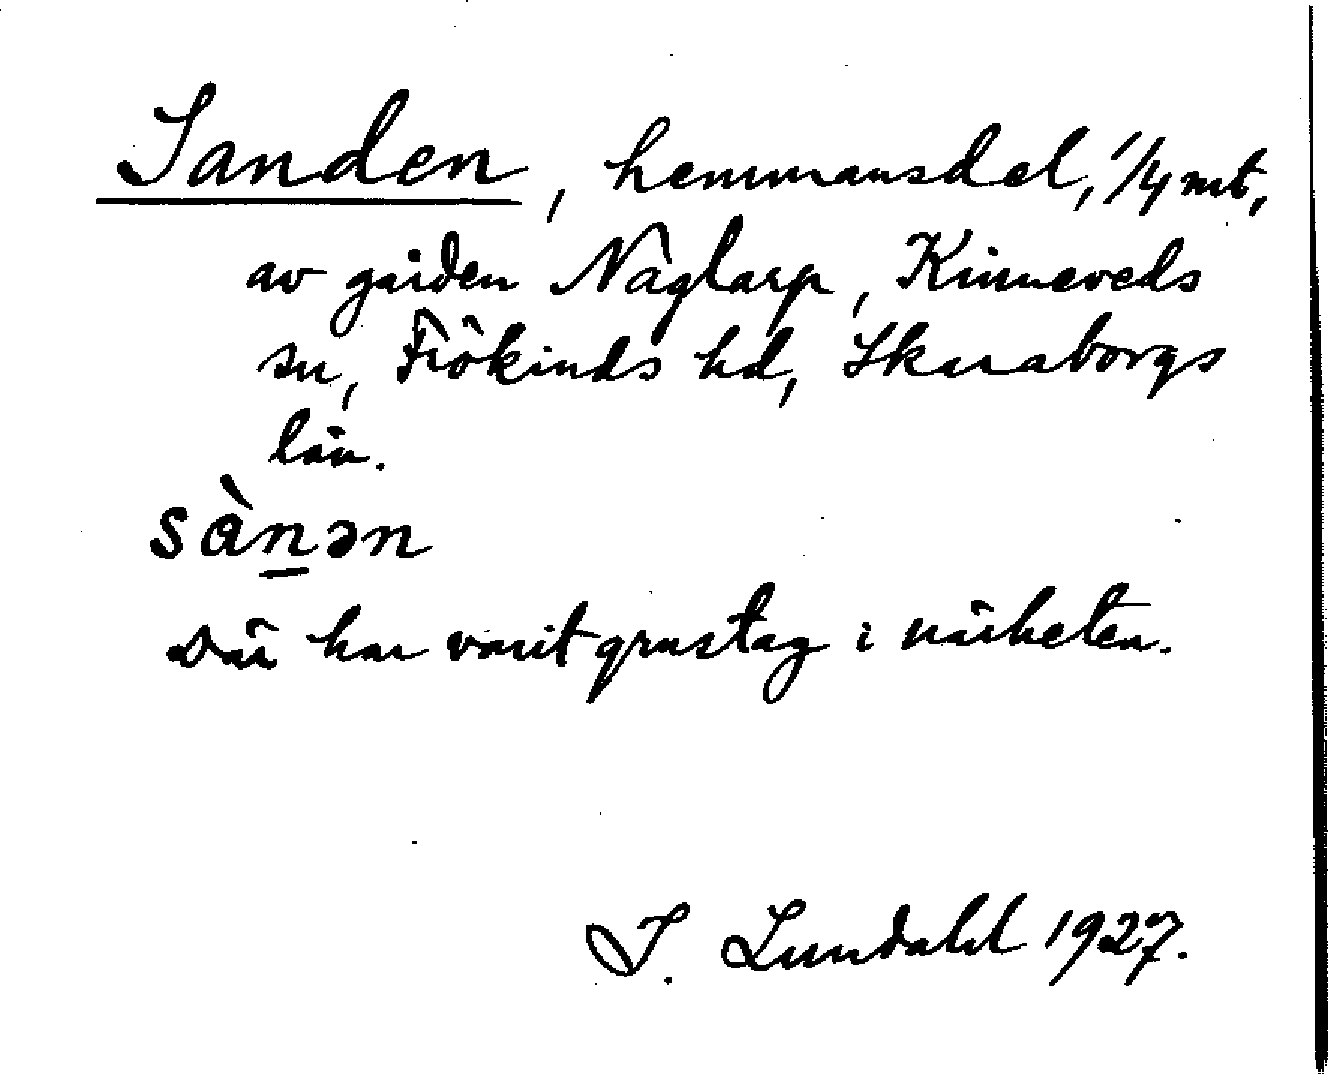 Sanden, hemmansdel, 1/4 mt,
av gården Naglarp, Kinneveds
sn, Frökinds hd, Skaraborgs
län.
sàn̲ən
Där har varit grustag i närheten.
I. Lundahl 1927.